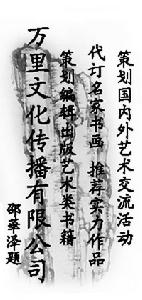 策划国内外艺术交流活动
代订名家书画 推荐实力作品
策划编辑出版艺术类书籍
万里文化传播有限公司
邵华泽题